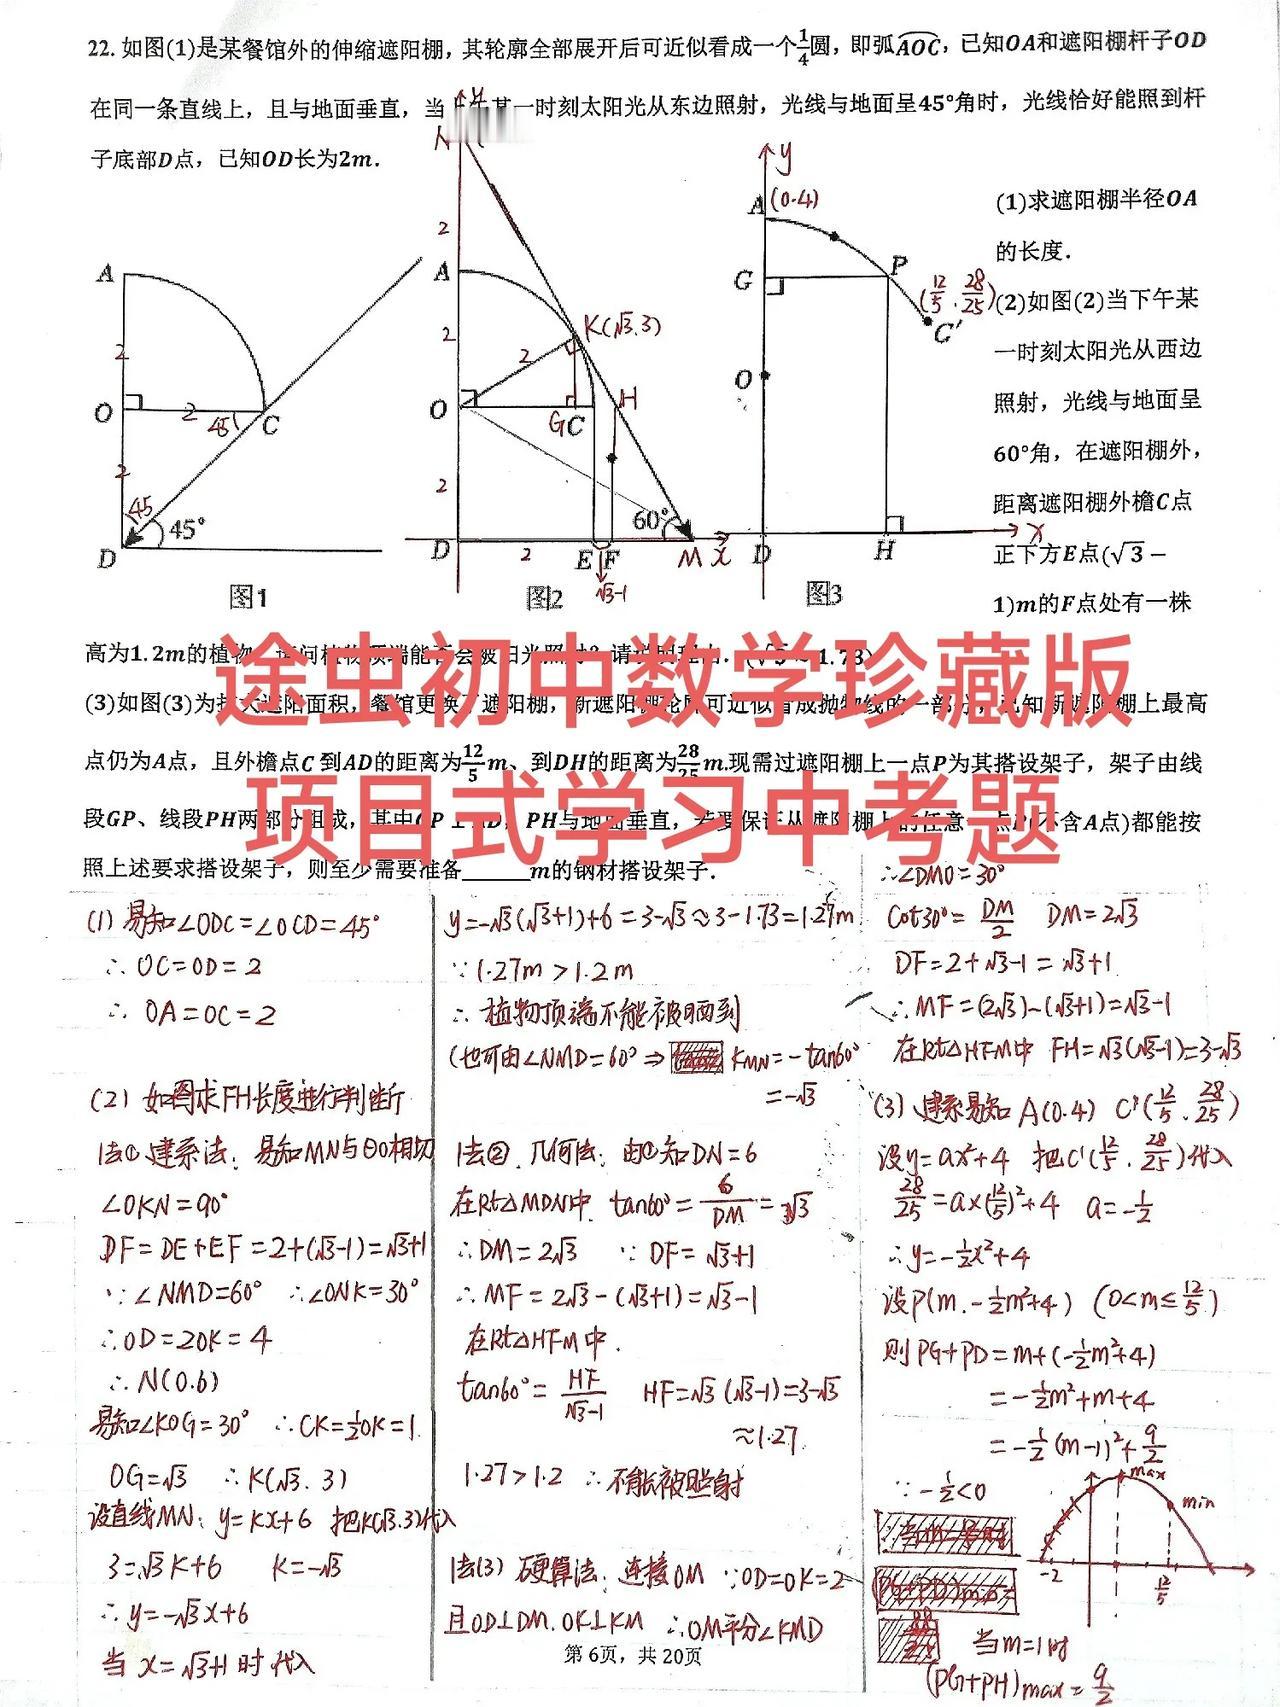 22. 如图(1)是某餐馆外的伸缩遮阳棚，其轮廓全部展开后可近似看成一个1/4圆，即弧AOC，已知OA和遮阳棚杆子OD
在同一条直线上，且与地面垂直，当上午某一时刻太阳光从东边照射，光线与地面呈45°角时，光线恰好能照到杆
子底部D点，已知OD长为2m．
(1)求遮阳棚半径OA
的长度．
(2)如图(2)当下午某
一时刻太阳光从西边
照射，光线与地面呈
60°角，在遮阳棚外，
距离遮阳棚外檐C点
正下方E点(√3−
1)m的F点处有一株
高为1.2m的植物，请问植物顶端能否会被阳光照射？请说明理由．(√3≈1.73)
(3)如图(3)为扩大遮阳面积，餐馆更换了遮阳棚，新遮阳棚轮廓可近似看成抛物线的一部分，已知新遮阳棚上最高
点仍为A点，且外檐点C到AD的距离为12/5m、到DH的距离为28/25m.现需过遮阳棚上一点P为其搭设架子，架子由线
段GP、线段PH两部分组成，其中GP⊥AD，PH与地面垂直，若要保证从遮阳棚上的任意一点P(不含A点)都能按
照上述要求搭设架子，则至少需要准备______m的钢材搭设架子．
途虫初中数学珍藏版
项目式学习中考题
A
O
2
2
2
45
C
45
45°
D
图1
y
N
2
A
2
K(√3.3)
2
O
G
C
H
2
60°
D
2
E
F
M
x
√3-1
图2
y
A
(0.4)
G
P
(12/5.28/25)
C'
O
D
H
x
图3
(1) 易知∠ODC=∠OCD=45°
∴ OC=OD=2
∴ OA=OC=2
(2) 如图求FH长度进行判断
法①.建系法：易知MN与⊙O相切
∠OKN=90°
DF=DE+EF=2+(√3-1)=√3+1
∵∠NMD=60° ∴∠ONK=30°
∴OD=2OK=4
∴N(0.6)
易知∠KOG=30° ∴CK=1/2OK=1
OG=√3 ∴K(√3.3)
设直线MN：y=kx+6 把K(√3.3)代入
3=√3K+6 K=-√3
∴y=-√3x+6
当x=√3+1时代入
y=-√3(√3+1)+6=3-√3≈3-1.73=1.27m
∵1.27m>1.2m
∴植物顶端不能被晒到
(也可由∠NMD=60°⇒ KMN=-tan60°
=-√3
法②.几何法：由①知DN=6
在Rt△MDN中 tan60°=6/DM=√3
∴DM=2√3 ∵DF=√3+1
∴MF=2√3-(√3+1)=√3-1
在Rt△HFM中.
tan60°=HF/√3-1 HF=√3(√3-1)=3-√3
≈1.27
1.27>1.2 ∴不能被照射
法(3) 硬算法：连接OM ∵OD=OK=2
且OD⊥DM.OK⊥KM ∴OM平分∠KMD
∴∠DMO=30°
Cot30°=DM/2 DM=2√3
DF=2+√3-1=√3+1
∴MF=(2√3)-(√3+1)=√3-1
在Rt△HFM中 FH=√3(√3-1)=3-√3
(3)、建系易知A(0.4) C'(12/5.28/25)
设y=ax²+4 把C'(12/5.28/25)代入
28/25=a×(12/5)²+4 a=-1/2
∴y=-1/2x²+4
设P(m.-1/2m²+4) (0<m≤12/5)
则PG+PD=m+(-1/2m²+4)
=-1/2m²+m+4
=-1/2(m-1)²+9/2
∵-1/2<0
max
min
-2
12/5
当m=1时
(PG+PH)max=9/2
第6页，共20页